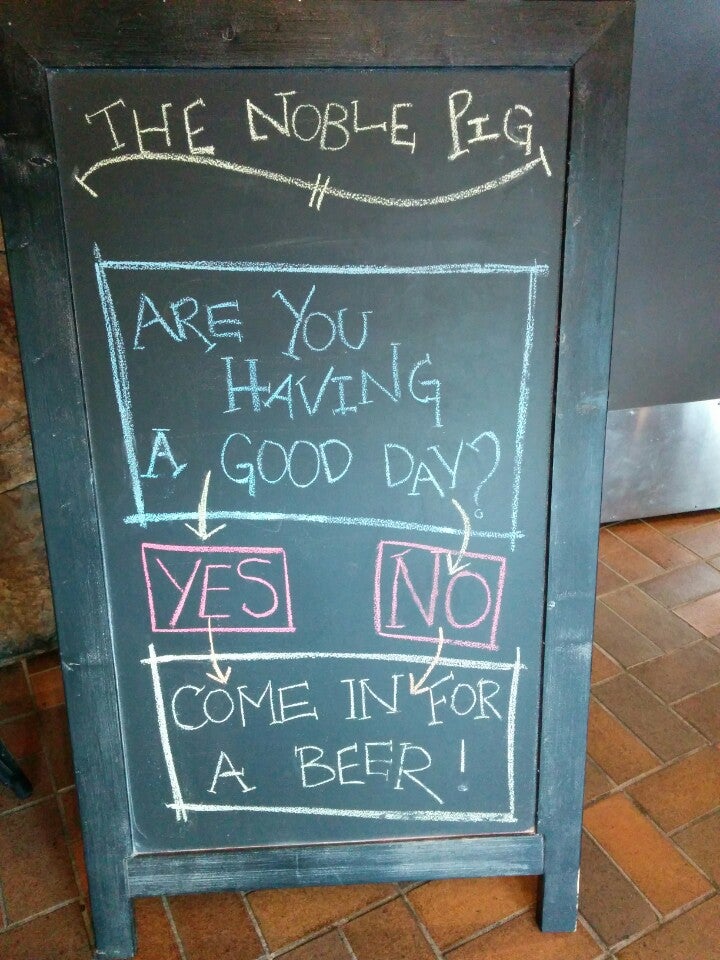 THE NOBLE PIG
ARE YOU
HAVING
A GOOD DAY?
YES NO
COME IN FOR
A BEER!